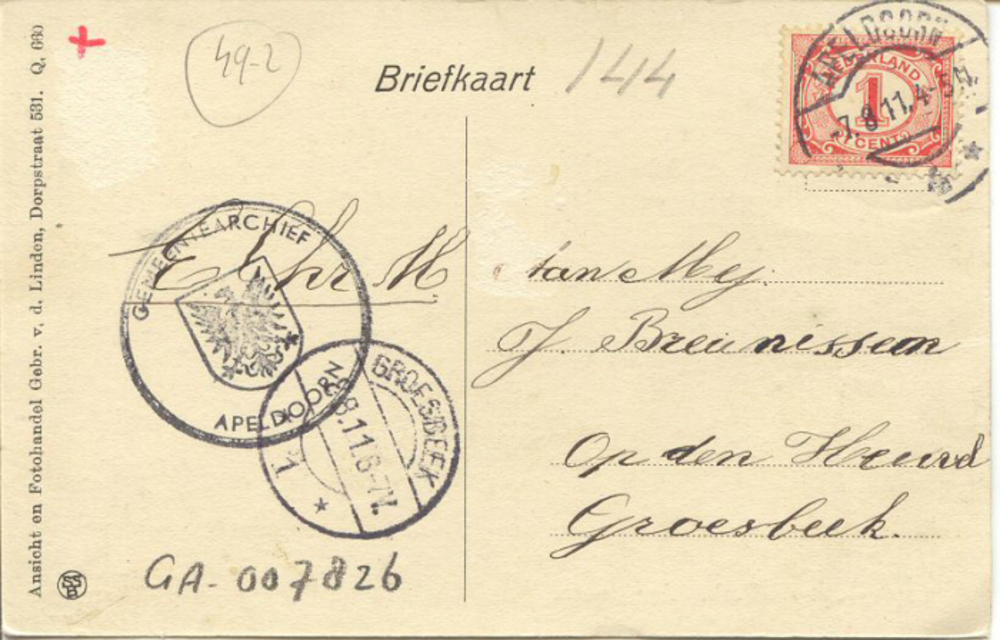 Ansicht en Fotohandel Gebr. v. d. Linden, Dorpstraat 531. Q. 660
49-2
Briefkaart
144
APELDOORN
-7.8.11.4-5N
NEDERLAND
1
CENT
GEMEENTEARCHIEF
APELDOORN
GROESBEEK
8.11.6-7V.
1
Aan Mej.
J. Breunissen
Op den Heuvel
Groesbeek.
GA-007826